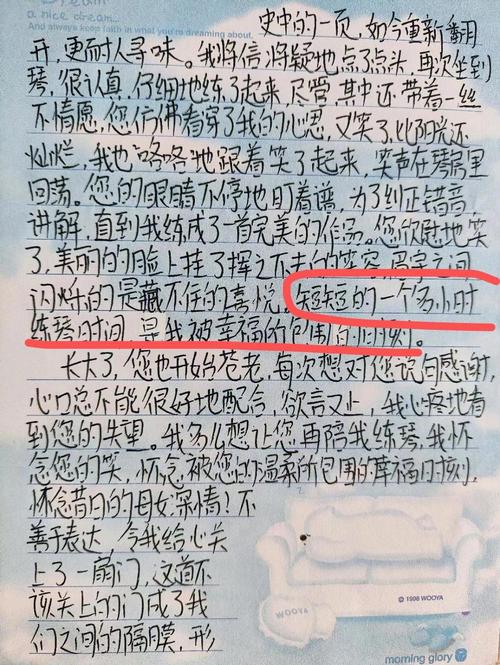 Dream
a nice dream...
And always keep faith in what you're dreaming about.
史中的一页,如今重新翻
开,更耐人寻味。我将信将疑地点了点头,再次坐到
琴,很认真,仔细地练了起来,尽管其中还带着一丝
不情愿,您仿佛看穿了我的心思,又笑了,比阳光还
灿烂,我也“咯咯”地跟着笑了起来,笑声在琴房里
回荡。您的眼睛不停地盯着谱,为了纠正错音,
讲解,直到我练成了一首完美的作品。您欣慰地笑
了,美丽的脸上挂了挥之不去的笑容,眉宇之间
闪烁的是藏不住的喜悦,短短的一个多小时
练琴时间,是我被幸福所包围的时刻。
长大了,您也开始苍老,每次想对您说句感谢,
心口总不能很好地配合,欲言又止,我心疼地看
到您的失望。我多么想让您再陪我练琴,我怀
念您的笑,怀念被您的温柔所包围的幸福时刻,
怀念昔日的母女深情!不
善于表达,令我给心关
上了一扇门,这道不
该关上的门成了我
们之间的隔膜,形
WOOYA
© 1998 WOOYA
morning glory